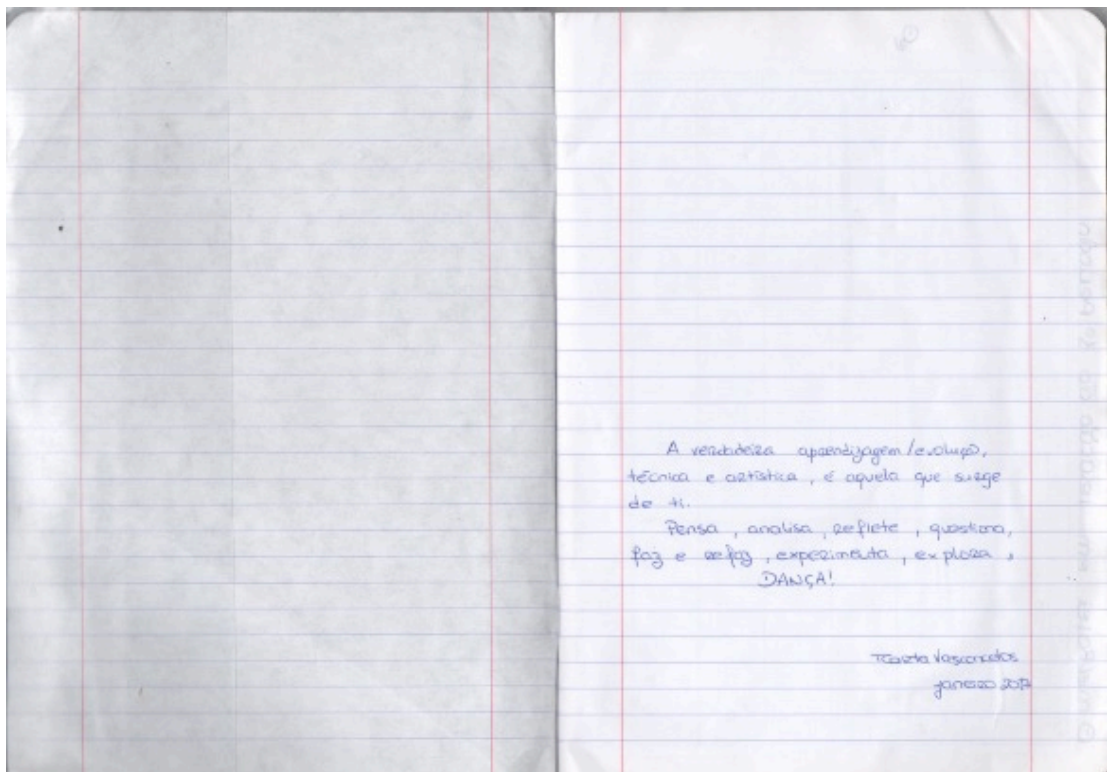 A verdadeira aprendizagem/evolução,
técnica e artística, é aquela que surge
de ti.
Pensa, analisa, reflete, questiona,
faz e refaz, experimenta, explora,
DANÇA!
Vasconcelos
janeiro 2017